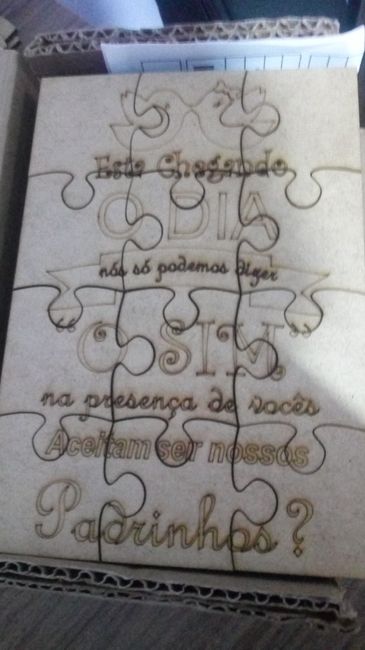 Esta Chegando
O DIA
nós só podemos dizer
"O SIM"
na presença de vocês
Aceitam ser nossos
Padrinhos?